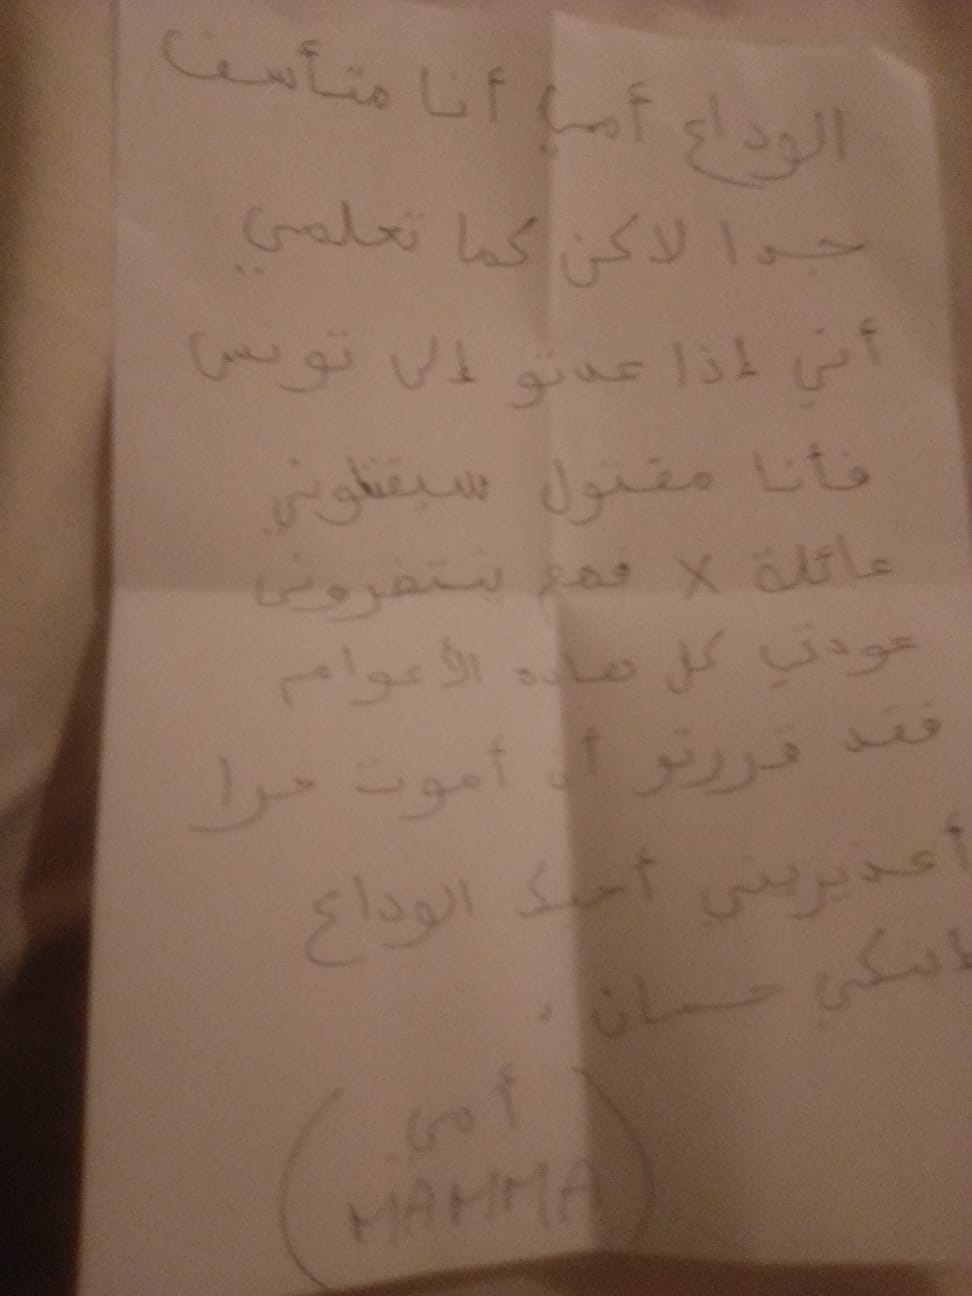 الوداع أمي أنا متأسف
جدا لاكن كما تعلمي
أني إذا عدتو إلى تونس
فأنا مقتول سيقتلوني
عائلة X فهم ينتضروني
عودتي كل هاده الأعوام
فقد قررتو أن أموت حرا
أعذيريني أحبك الوداع
إبنكي حسان .
أمي
MAMMA